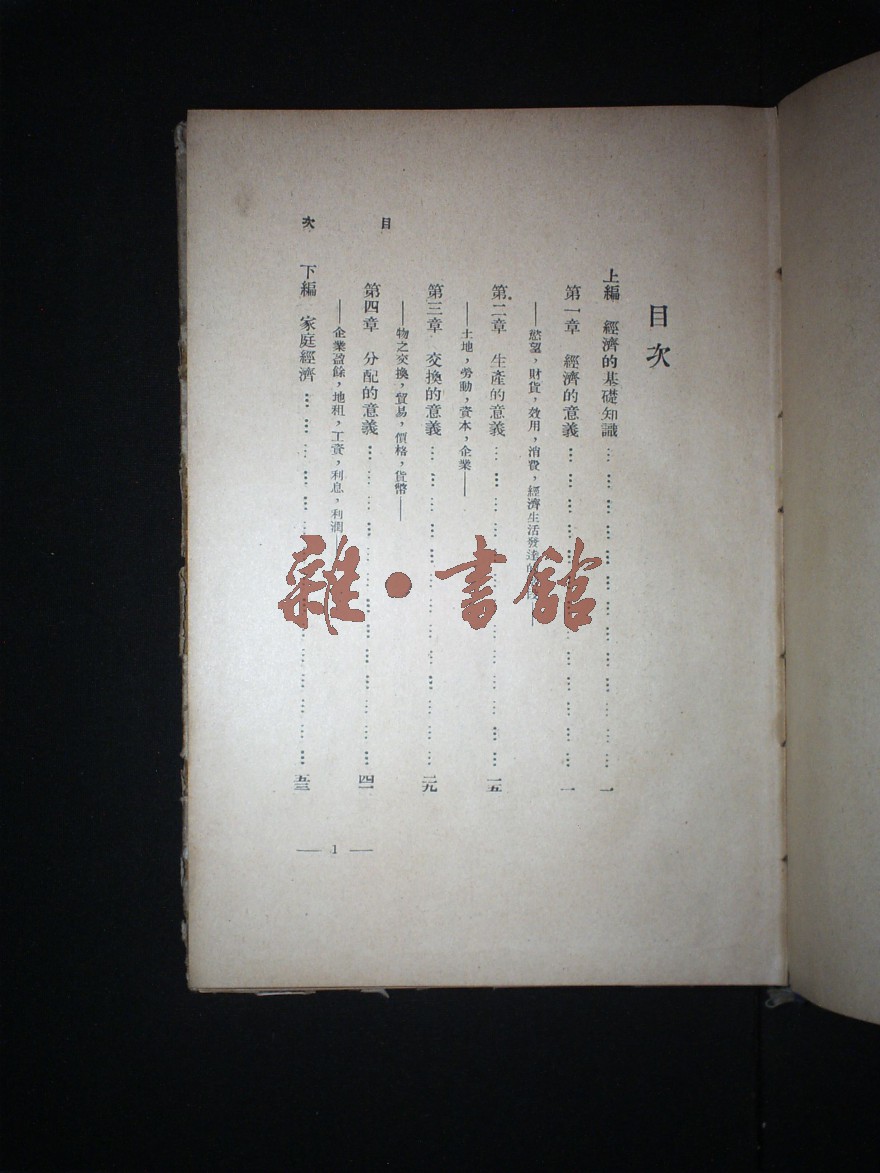 目次
上編　經濟的基礎知識……一
第一章　經濟的意義……一
——慾望，財貨，效用，消費，經濟生活發達的
第二章　生產的意義……一五
——土地，勞動，資本，企業——
第三章　交換的意義……二九
——物之交換，貿易，價格，貨幣——
第四章　分配的意義……四一
——企業盈餘，地租，工資，利息，利潤——
下編　家庭經濟……五三
目　次
— 1 —
雜·書館